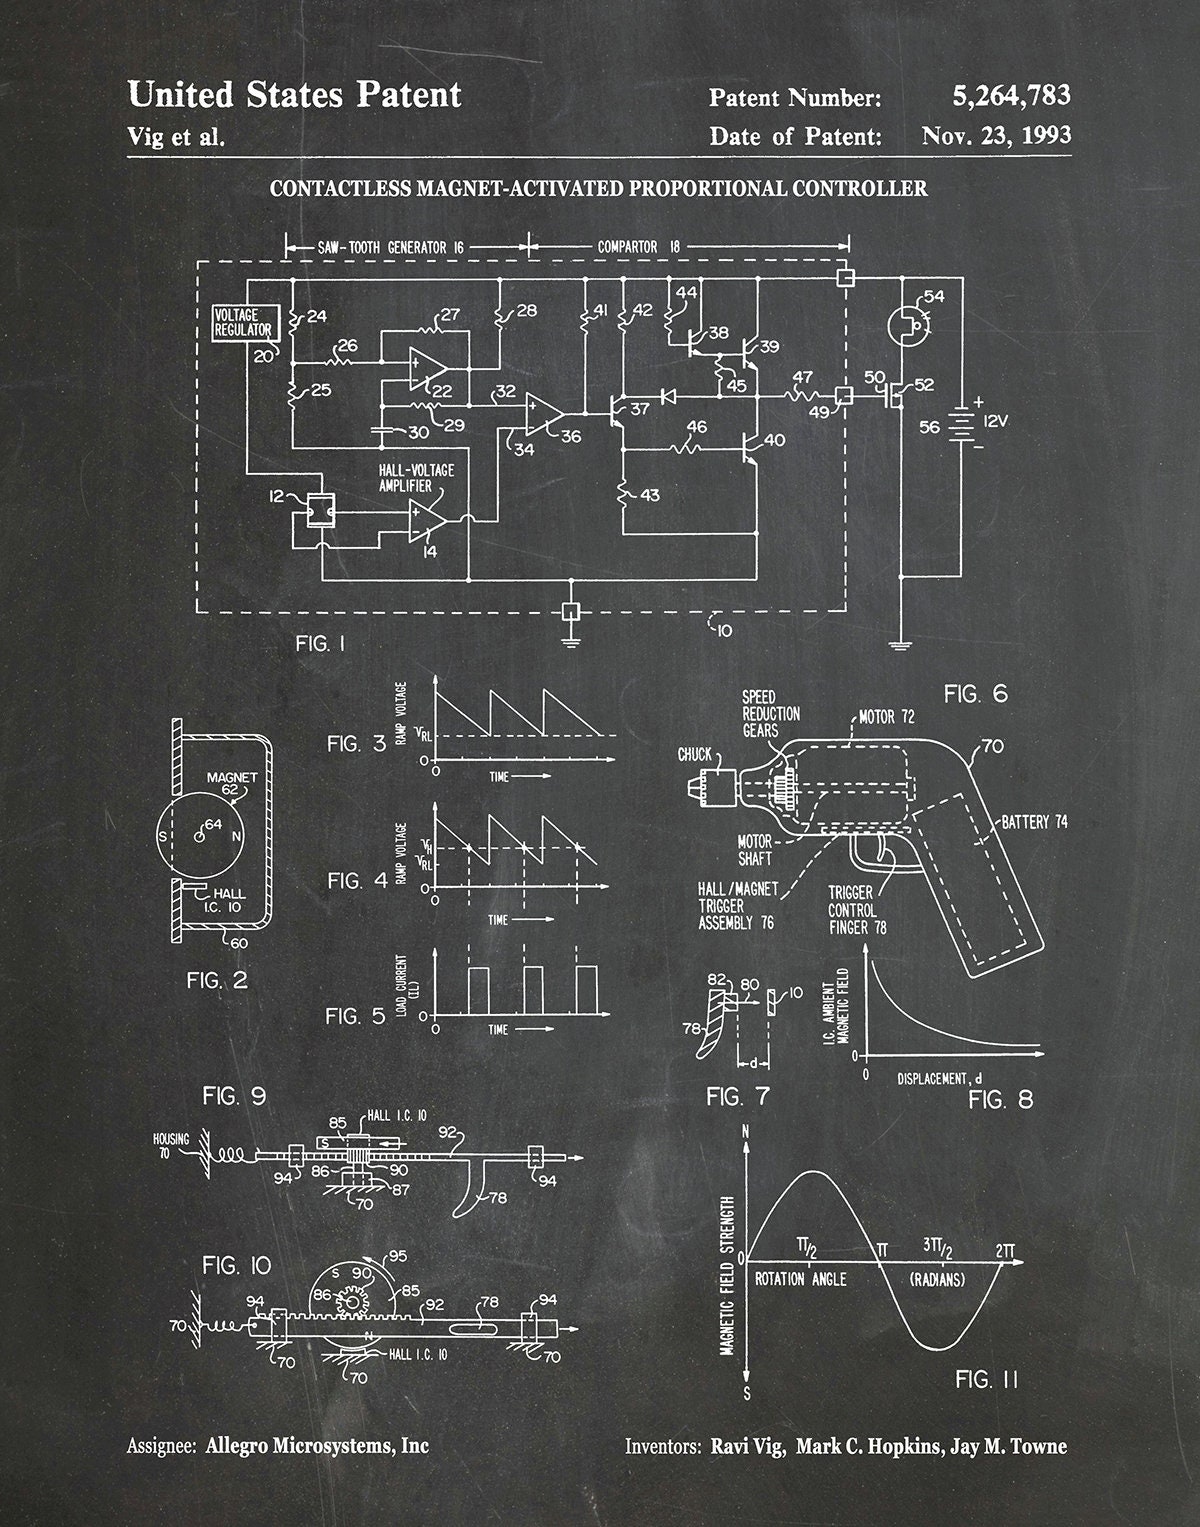 United States Patent
Vig et al.
Patent Number: 5,264,783
Date of Patent: Nov. 23, 1993
CONTACTLESS MAGNET-ACTIVATED PROPORTIONAL CONTROLLER
SAW-TOOTH GENERATOR 16
COMPARTOR 18
VOLTAGE
REGULATOR
20
24
25
26
27
28
22
29
30
32
34
36
41
42
44
38
39
45
37
46
40
43
47
49
50
52
54
56
+
12V
-
HALL-VOLTAGE
AMPLIFIER
12
+
-
14
10
FIG. 1
FIG. 2
MAGNET
62
S
64
N
HALL
I.C. 10
60
FIG. 3
RAMP VOLTAGE
VRL
0
0
TIME
FIG. 4
RAMP VOLTAGE
VH
VRL
0
TIME
FIG. 5
LOAD CURRENT
(IL)
0
TIME
FIG. 6
SPEED
REDUCTION
GEARS
MOTOR 72
70
CHUCK
BATTERY 74
MOTOR
SHAFT
HALL/MAGNET
TRIGGER
ASSEMBLY 76
TRIGGER
CONTROL
FINGER 78
82
80
10
78
d
FIG. 7
I.C. AMBIENT
MAGNETIC FIELD
0
0
DISPLACEMENT, d
FIG. 8
FIG. 9
HOUSING
70
85
HALL I.C. 10
S
92
94
86
90
87
70
78
94
FIG. 10
95
S
90
86
85
94
92
78
94
70
N
70
HALL I.C. 10
70
70
N
MAGNETIC FIELD STRENGTH
0
π/2
π
3π/2
2π
ROTATION ANGLE
(RADIANS)
S
FIG. 11
Assignee: Allegro Microsystems, Inc
Inventors: Ravi Vig, Mark C. Hopkins, Jay M. Towne